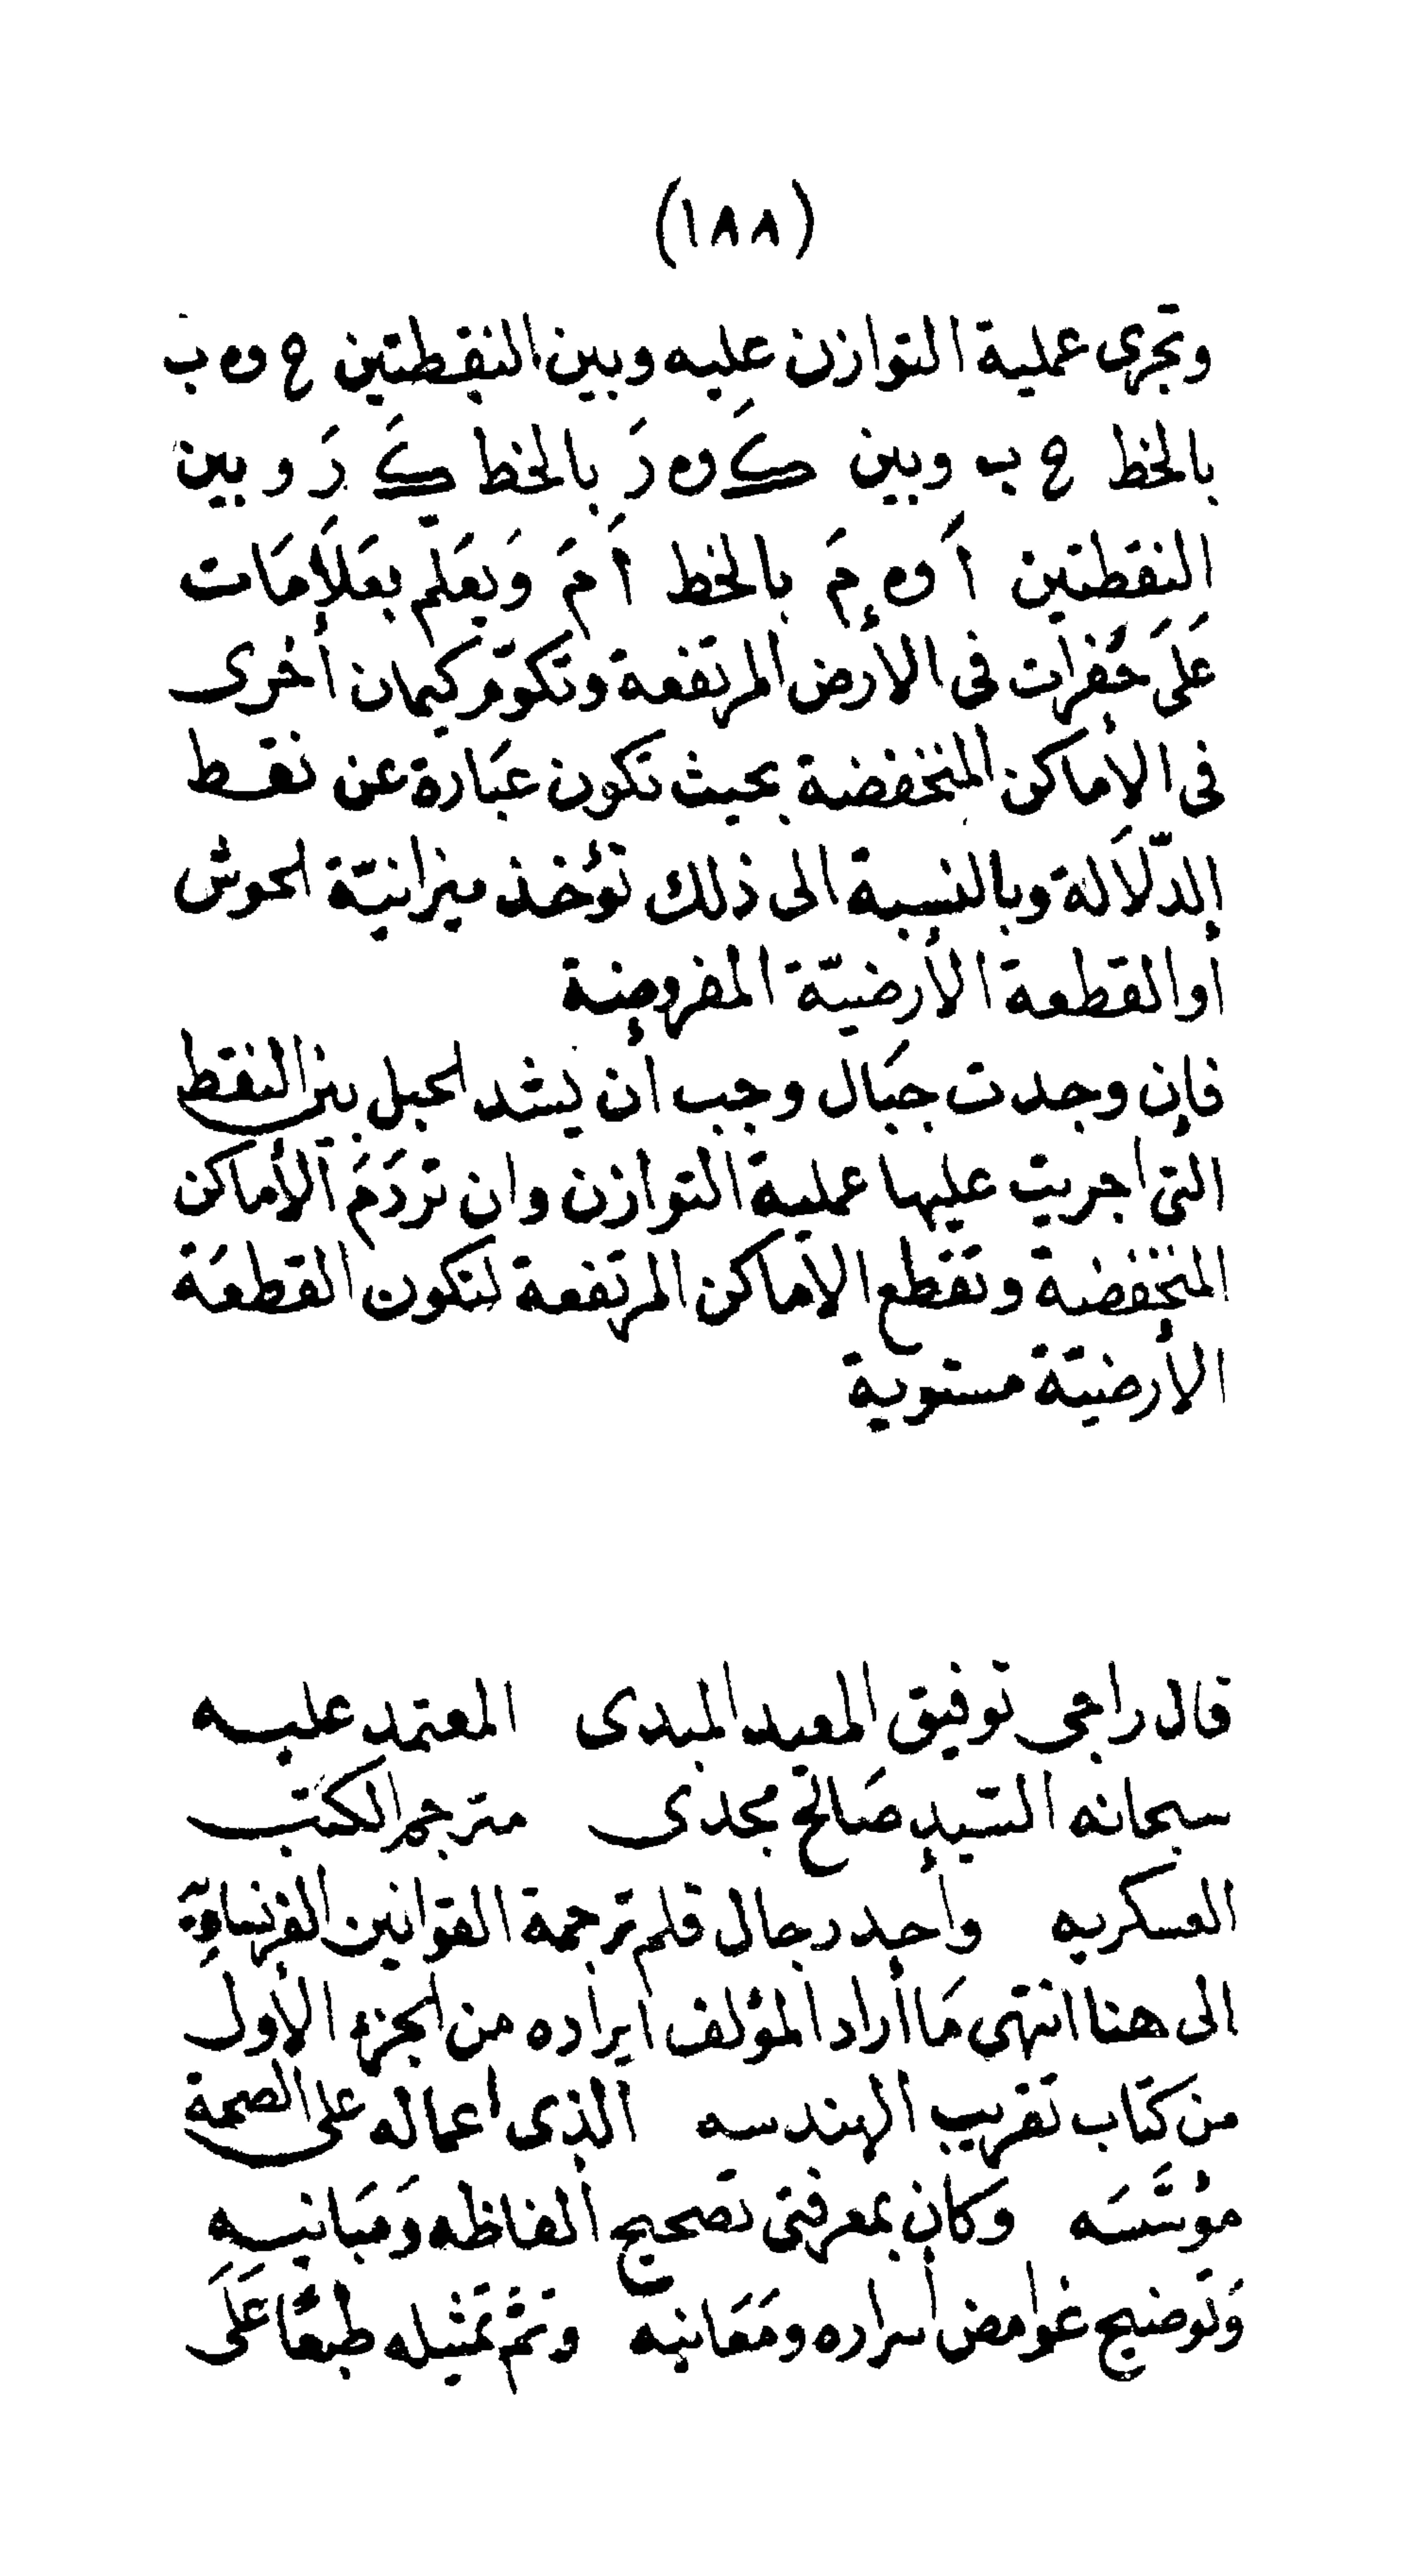 (١٨٨)
وتجرى عملية التوازن عليه وبين النقطتين ح و ه ب
بالخط ح ب وبين كَ و ه رَ بالخط كَ رَ وبين
النقطتين اَ و ه مَ بالخط اَ مَ وَيعَلّم بعَلاَمَات
عَلىَ حُفرات فى الأرض المرتفعة وتكوّم كيمان أخرى
فى الأماكن المنخفضة بحيث تكون عبَارة عن نقط
الدّلاَلة وبالنسبة الى ذلك تؤخذ ميزانيّة الحوش
أوالقطعة الأرضيّة المفروضة
فإن وجدت جبَال وجب أن يشد الحبل بين النقط
التى اجريت عليها عملية التوازن وان تردَمَ الأماكن
المنخفضة وتقطع الأماكن المرتفعة لتكون القطعَة
الأرضيّة مستوية
قال راجى توفيق المعيد المبدى المعتمد عليه
سبحانه السّيد صَالح مجدى مترجم الكتب
العسكريه وأحد رجال قلم ترجمة القوانين الفرنساويّه
الى هنا انتهى مَا أراد المؤلف ايراده من الجزء الأول
من كتَاب تقريب الهندسه الذى اعماله على الصحة
مؤسَّسَه وَكان بمعرفتى تصحيح ألفاظه وَمبَانيه
وَتوضيح غوامض أسراره ومَعَانيه وتمّ تمثيله طبعًا عَلىَ